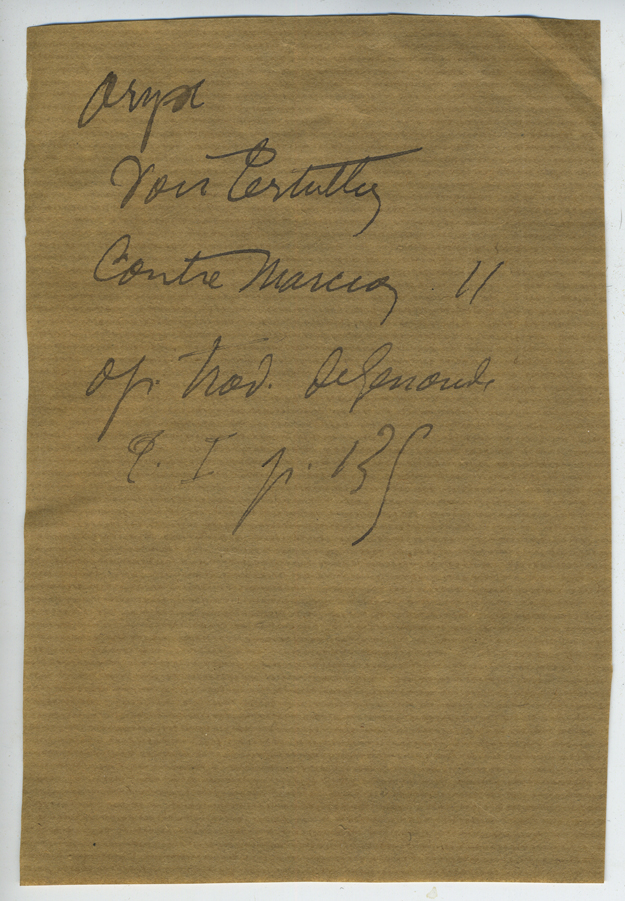 Oryx
Voir Tertullien
Contre Marcion II
op. trad. de Genoude
T. I p. 135